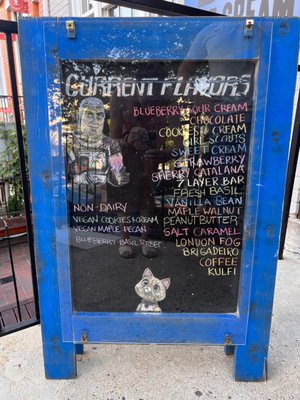 CREAM
CURRENT FLAVORS
BLUEBERRY SOUR CREAM
CHOCOLATE
COOKIES & CREAM
GIRL SCOUTS
SWEET CREAM
STRAWBERRY
SHERRY CATALANA
7 LAYER BAR
FRESH BASIL
VANILLA BEAN
MAPLE WALNUT
PEANUT BUTTER
SALT CARAMEL
LONDON FOG
BRIGADEIRO
COFFEE
KULFI
NON-DAIRY
VEGAN COOKIES & CREAM
VEGAN MAPLE PECAN
BLUEBERRY BASIL SORBET